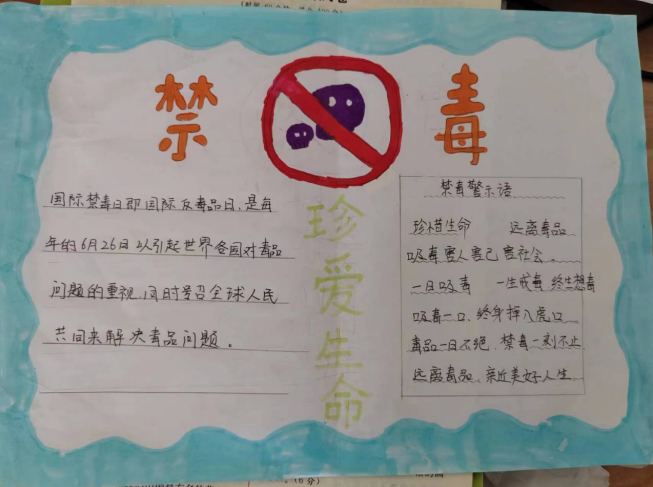 禁 毒
国际禁毒日即国际反毒品日,是每
年的6月26日以引起世界各国对毒品
问题的重视,同时号召全球人民
共同来解决毒品问题。
珍爱生命
禁毒警示语
珍惜生命 远离毒品
吸毒害人害己害社会。
一日吸毒 一生戒毒 终生想毒
吸毒一口,终身掉入虎口
毒品一日不绝,禁毒一刻不止
远离毒品,亲近美好人生
(6分)